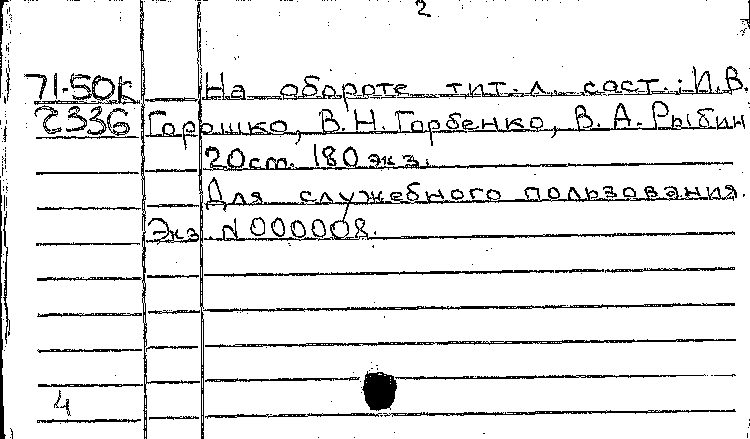 2
71-50К На обороте тит. л. сост.: И.В.
2336 Горошко, В.Н.Горбенко, В.А.Рыбин
20см. 180 экз.
Для служебного пользования.
Экз. N000008.
4